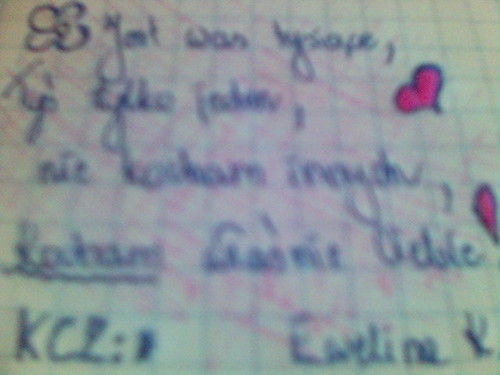 Jest was tysiące,
Ty tylko jeden,
nie kocham innych,
Kocham właśnie Ciebie
KCZ:
Ewelina K.